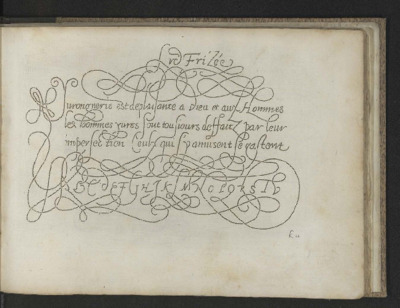 lrē Frizée
Yurongnerie est deplaisante a Dieu et aux Hommes
les hommes yures sont tousiours deffaitz par leur
imperfection Ceulx qui s'amusent se gastent
A B C D E F G H I K L M N O P Q R S T V